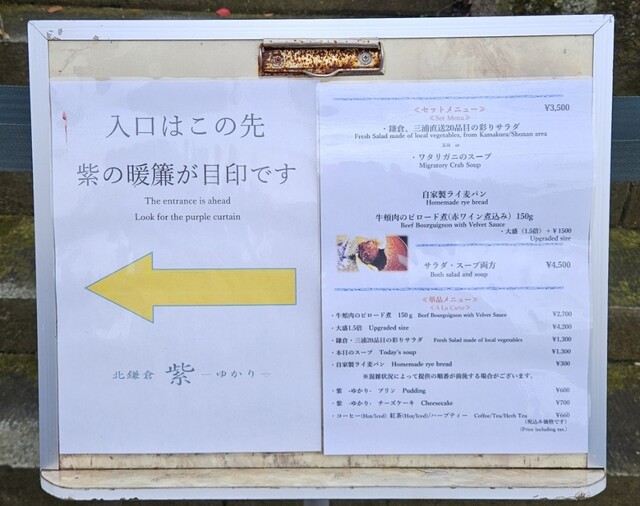 入口はこの先
紫の暖簾が目印です
The entrance is ahead
Look for the purple curtain
北鎌倉 紫 ―ゆかり―
＜セットメニュー＞ ¥3,500
＜Set Menu＞
・鎌倉、三浦直送20品目の彩りサラダ
Fresh Salad made of local vegetables, from Kamakura/Shonan area
・ワタリガニのスープ
Migratory Crab Soup
自家製ライ麦パン
Homemade rye bread
牛頬肉のビロード煮(赤ワイン煮込み) 150g
Beef Bourguignon with Velvet Sauce
・大盛（1.5倍）＋¥1500
Upgraded size
サラダ・スープ両方 ¥4,500
Both salad and soup
＜単品メニュー＞
＜A La Carte＞
・牛頬肉のビロード煮 150ｇ Beef Bourguignon with Velvet Sauce ¥2,700
・大盛1.5倍 Upgraded size ¥4,200
・鎌倉・三浦直送20品目の彩りサラダ Fresh Salad made of local vegetables ¥1,300
・本日のスープ Today's soup ¥1,300
・自家製ライ麦パン Homemade rye bread ¥300
※混雑状況によって提供の順番が前後する場合がございます。
・紫 -ゆかり- プリン Pudding ¥600
・紫 -ゆかり- チーズケーキ Cheesecake ¥700
・コーヒー(Hot/Iced) 紅茶(Hot/Iced)/ハーブティー Coffee/Tea/Herb Tea ¥660
(税込み価格です)
(Price including tax.)